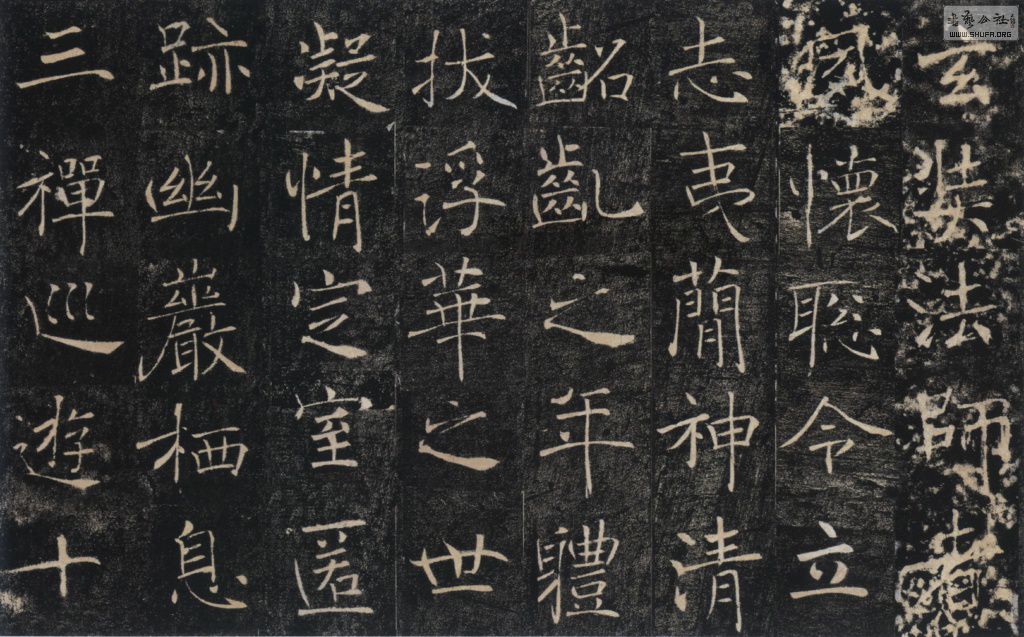 玄奘法師者
夙懷聰令立
志夷簡神清
齠齔之年體
拔浮華之世
凝情定室匿
跡幽巖栖息
三禪巡遊十
書藝公社
WWW.SHUFA.ORG